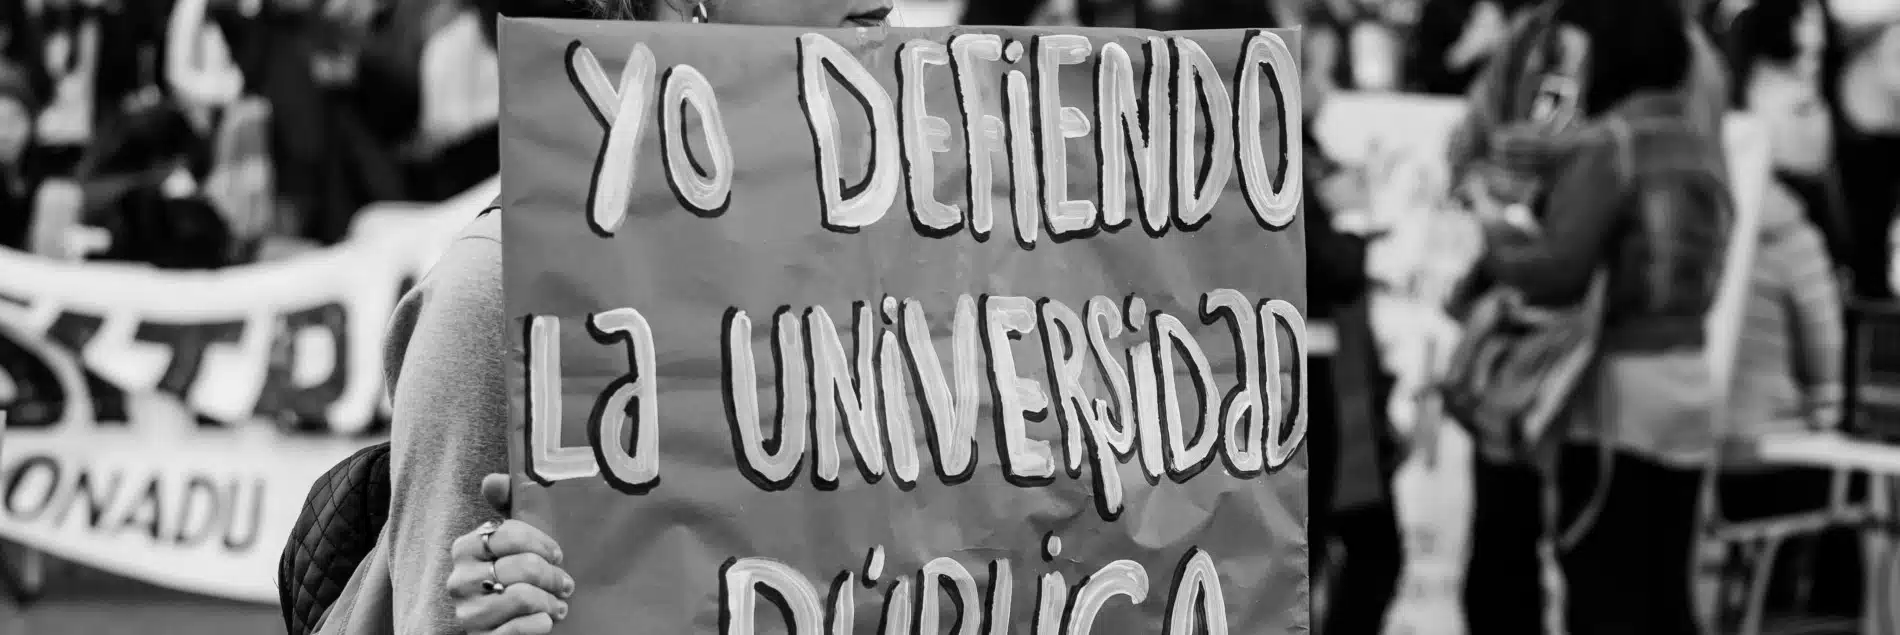 YO DEFiENDO
La UNiVERSiDaD
PÚBLiCA
ONADU